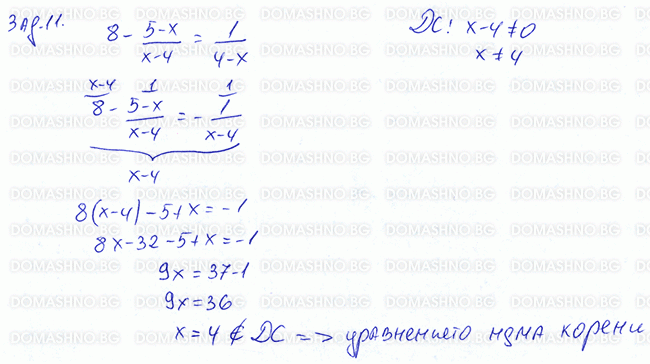 Зад.11.
8 - (5-x)/(x-4) = 1/(4-x)
ДС: x-4≠0
x≠4
x-4 1 1
8 - (5-x)/(x-4) = - 1/(x-4)
x-4
8(x-4)-5+x=-1
8x-32-5+x=-1
9x=37-1
9x=36
x=4 ∉ ДС => уравнението няма корени
DOMASHNO.BG